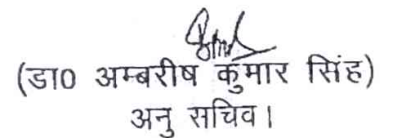 (डा० अम्बरीष कुमार सिंह)
अनु सचिव।